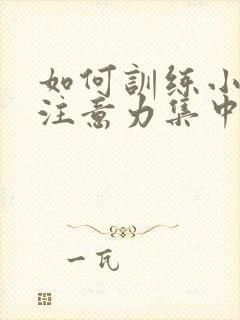 如何訓練小
注意力集中
一瓦